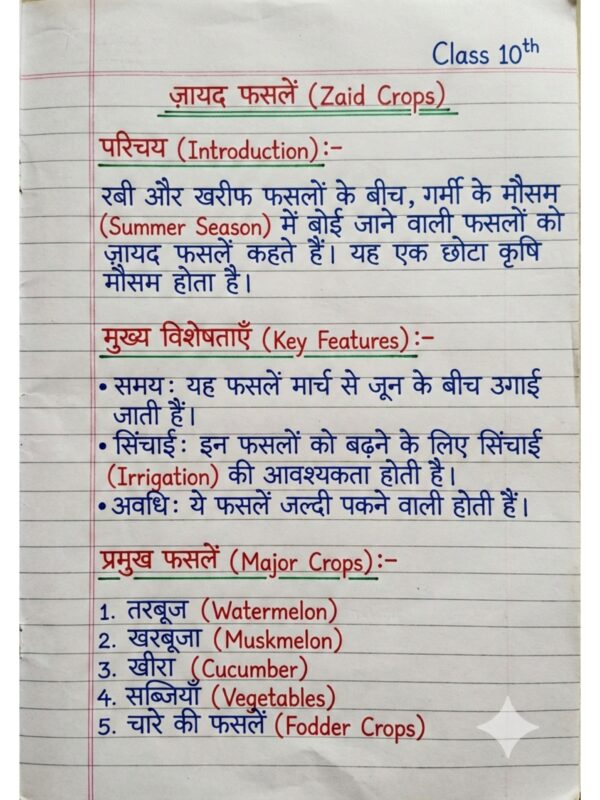 Class 10th
ज़ायद फसलें (Zaid Crops)
परिचय (Introduction):-
रबी और खरीफ फसलों के बीच, गर्मी के मौसम
(Summer Season) में बोई जाने वाली फसलों को
ज़ायद फसलें कहते हैं। यह एक छोटा कृषि
मौसम होता है।
मुख्य विशेषताएँ (Key Features):-
• समय: यह फसलें मार्च से जून के बीच उगाई
जाती हैं।
• सिंचाई: इन फसलों को बढ़ने के लिए सिंचाई
(Irrigation) की आवश्यकता होती है।
• अवधि: ये फसलें जल्दी पकने वाली होती हैं।
प्रमुख फसलें (Major Crops):-
1. तरबूज (Watermelon)
2. खरबूजा (Muskmelon)
3. खीरा (Cucumber)
4. सब्जियाँ (Vegetables)
5. चारे की फसलें (Fodder Crops)